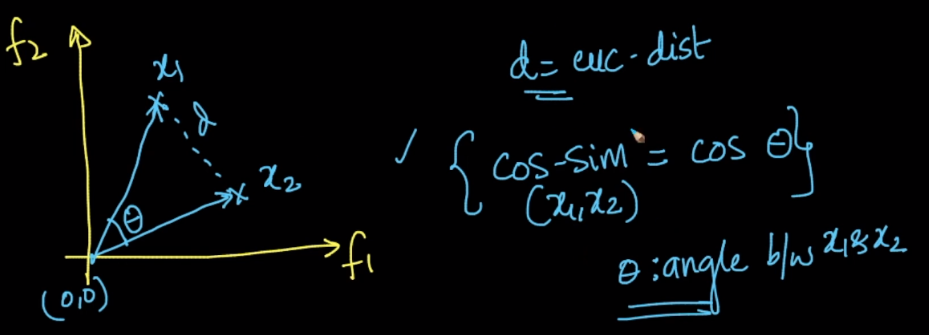 f₂
x₁
d
x₂
θ
f₁
(0,0)
d = euc-dist
✓ { cos-sim = cos θ }
(x₁, x₂)
θ : angle b/w x₁ & x₂